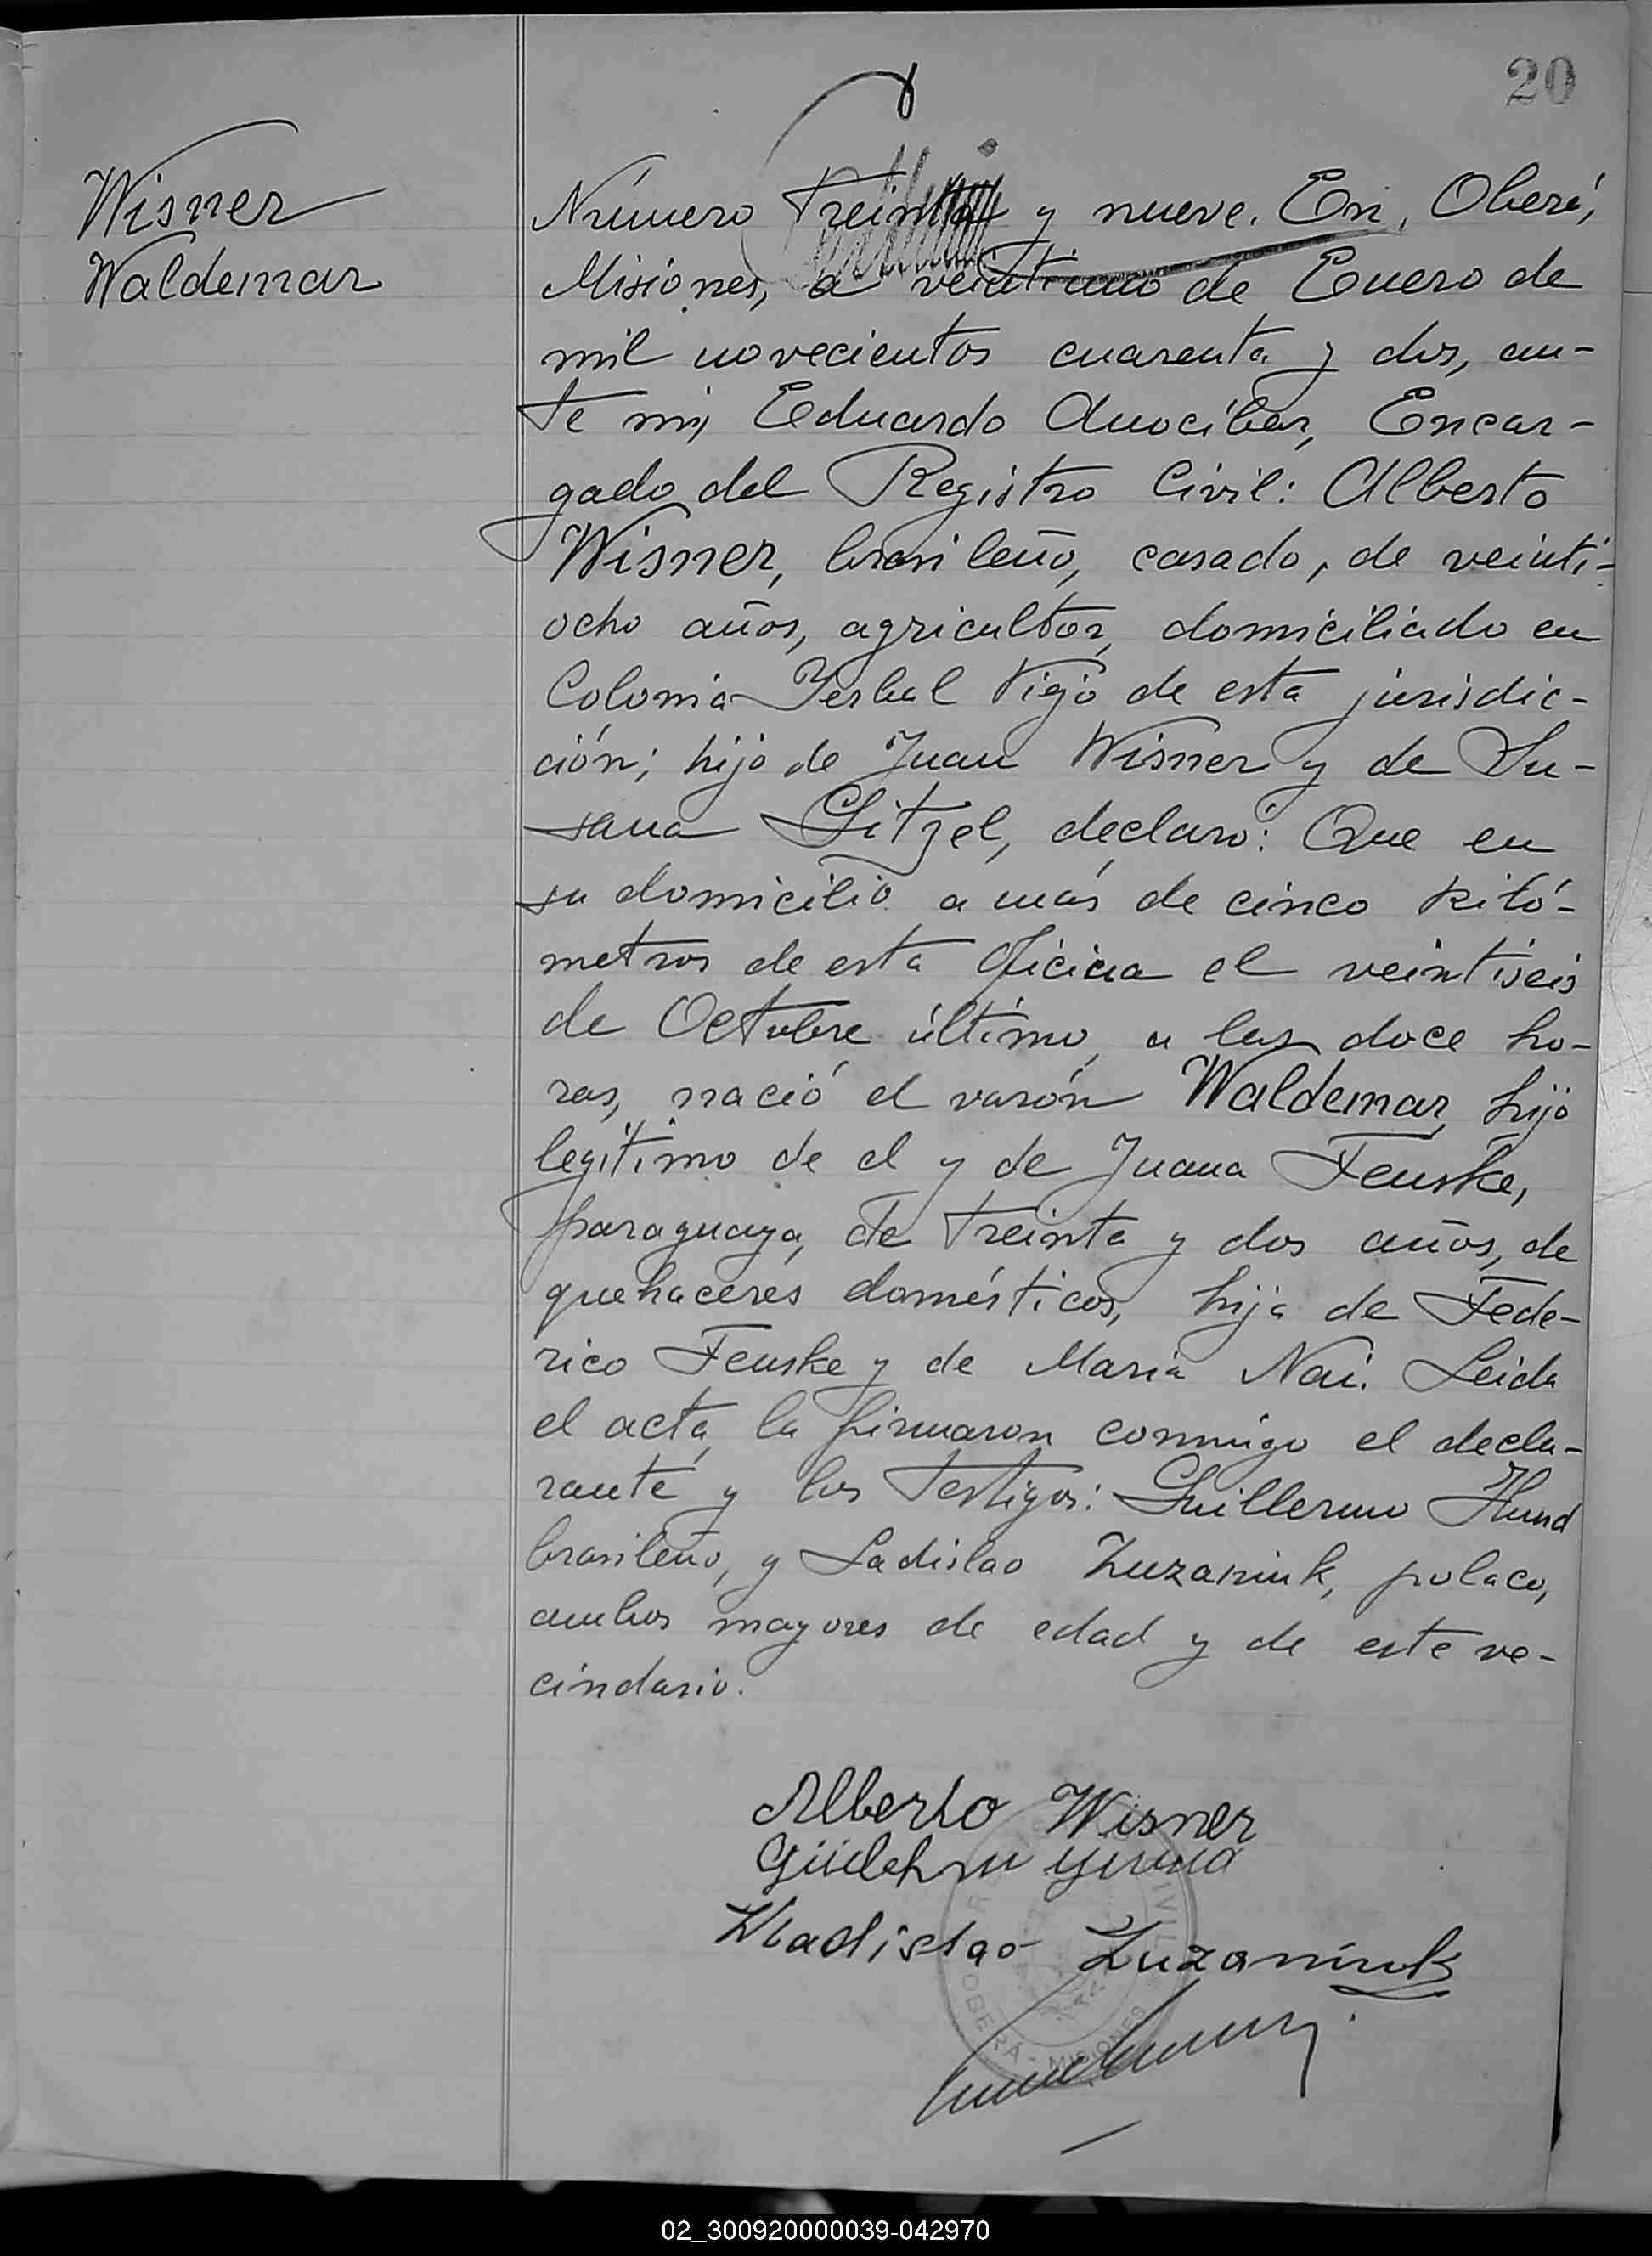 20
Wisner
Waldemar
Número Treinta y nueve. En Oberá,
Misiones, a veintiuno de Enero de
mil novecientos cuarenta y dos, an-
te mi, Eduardo Anocibar, Encar-
gado del Registro Civil: Alberto
Wisner, brasileño, casado, de veinti-
ocho años, agricultor, domiciliado en
Colonia Yerbal Viejo de esta jurisdic-
ción; hijo de Juan Wisner y de Su-
sana Litzel, declaró: Que en
su domicilio a más de cinco kiló-
metros de esta Oficina el veintiseis
de Octubre último, a las doce ho-
ras, nació el varón Waldemar, hijo
legítimo de el y de Juana Fenske,
paraguaya, de treinta y dos años, de
quehaceres domésticos, hija de Fede-
rico Fenske y de Maria Nai. Leida
el acta, la firmaron conmigo el decla-
rante y los testigos: Guillermo Hund
brasileño, y Ladislao Zuzaniuk, polaco,
ambos mayores de edad y de este ve-
cindario.
Alberto Wisner
Wladislao Zuzaniuk
OBERÁ - MISIONES
02_300920000039-042970